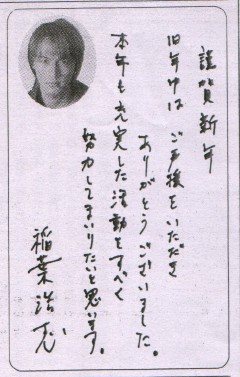 謹賀新年
旧年中はご声援をいただき
ありがとうございました。
本年も充実した活動をすべく
努力してまいりたいと思います。
稲葉浩志